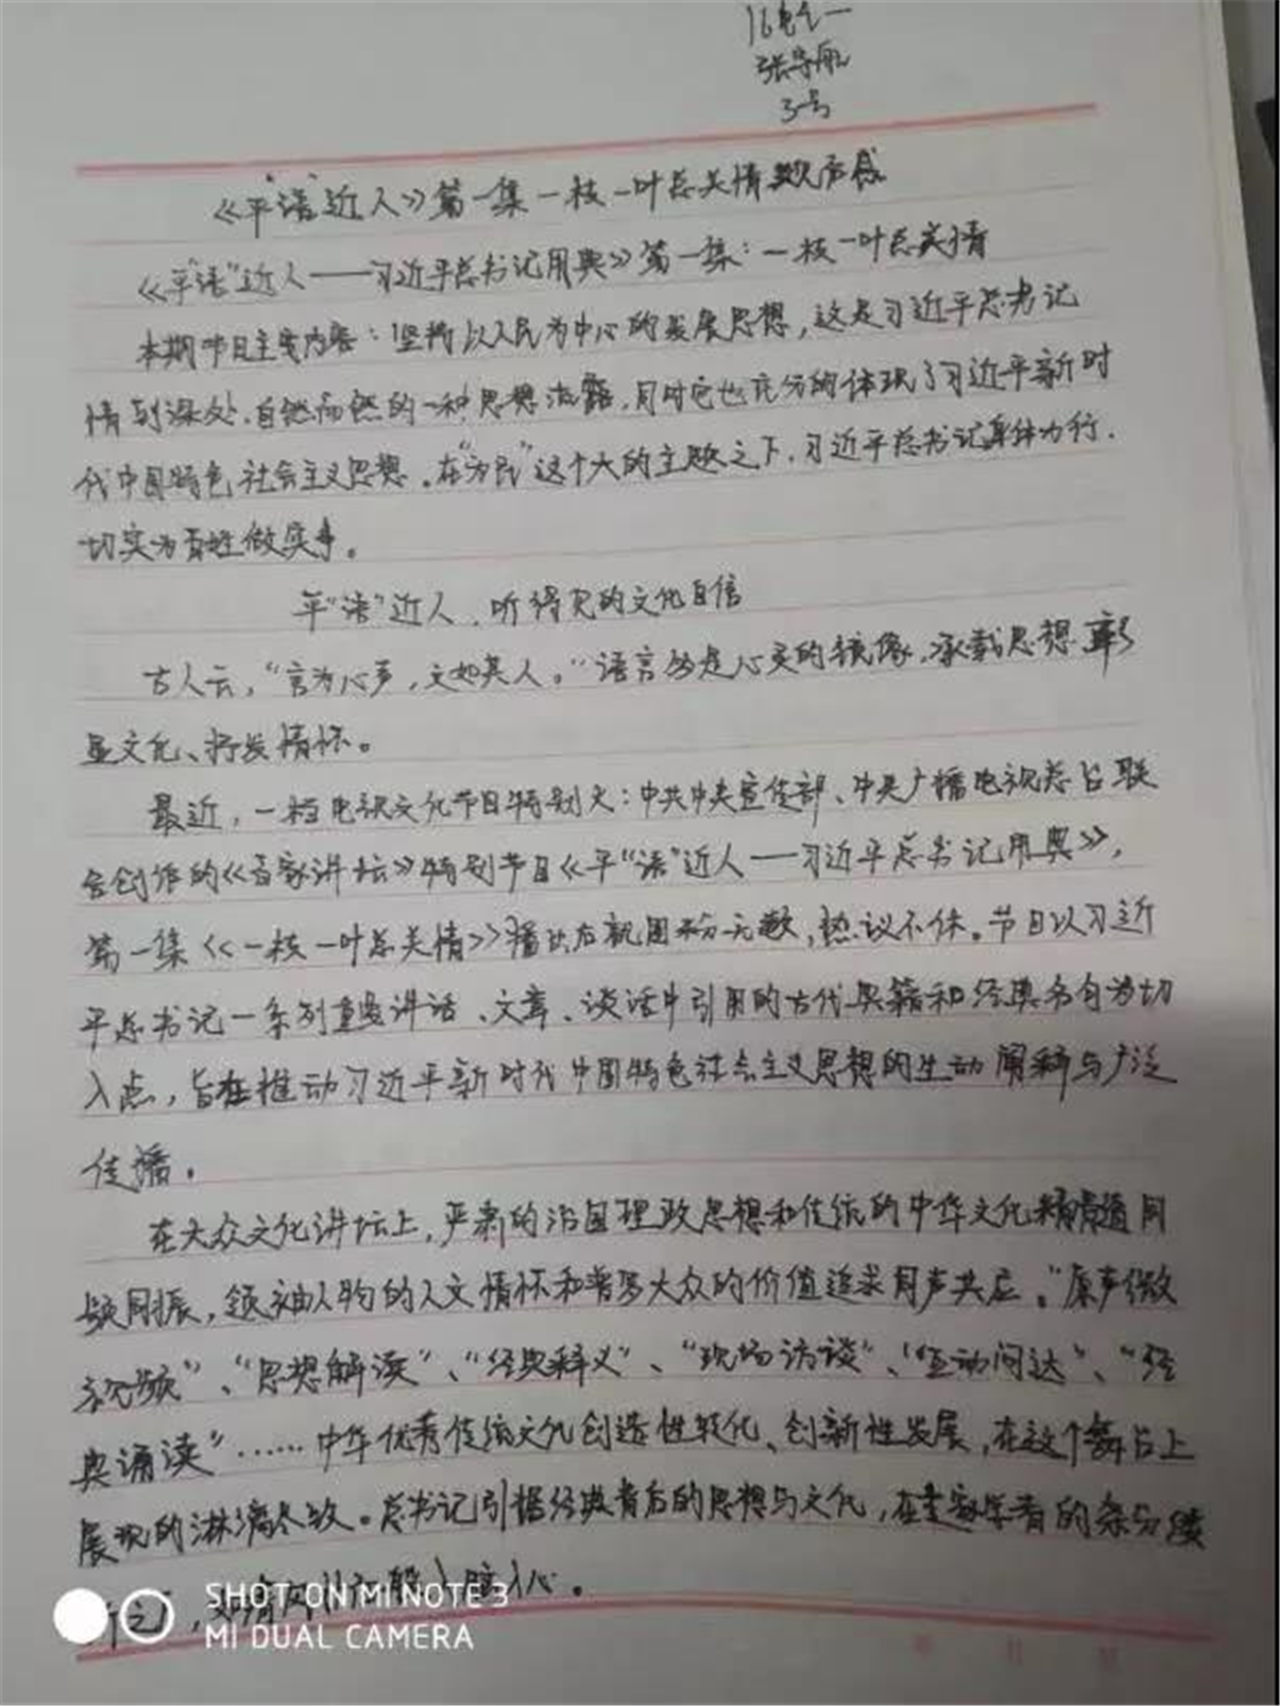 16电气一
张宇航
3号
《平“语”近人》第一集一枝一叶总关情观后感
《平“语”近人——习近平总书记用典》第一集：一枝一叶总关情
本期节目主要内容：坚持以人民为中心的发展思想，这是习近平总书记
情到深处，自然而然的一种思想流露，同时它也充分的体现了习近平新时
代中国特色社会主义思想。在“为民”这个大的主题之下，习近平总书记身体力行，
切实为百姓做实事。
平“语”近人，听得见的文化自信
古人云，“言为心声，文如其人。”语言仍是心灵的镜像，承载思想、彰
显文化、抒发情怀。
最近，一档电视文化节目特别火：中共中央宣传部、中央广播电视总台联
合创作的《百家讲坛》特别节目《平“语”近人——习近平总书记用典》，
第一集《一枝一叶总关情》播出后就圈粉无数，热议不休。节目以习近
平总书记一系列重要讲话、文章、谈话中引用的古代典籍和经典名句为切
入点，旨在推动习近平新时代中国特色社会主义思想的生动阐释与广泛
传播。
在大众文化讲坛上，严肃的治国理政思想和传统的中华文化精髓同
频同振，领袖人物的人文情怀和普罗大众的价值追求同声共应。“原声微
视频”、“思想解读”、“经典释义”、“现场访谈”、“互动问达”、“经
典诵读”……中华优秀传统文化创造性转化、创新性发展，在这个舞台上
展现的淋漓尽致。总书记引据经典背后的思想与文化，在专家学者的条分缕
析之下，如清风化雨般入脑入心。
SHOT ON MI NOTE 3
MI DUAL CAMERA